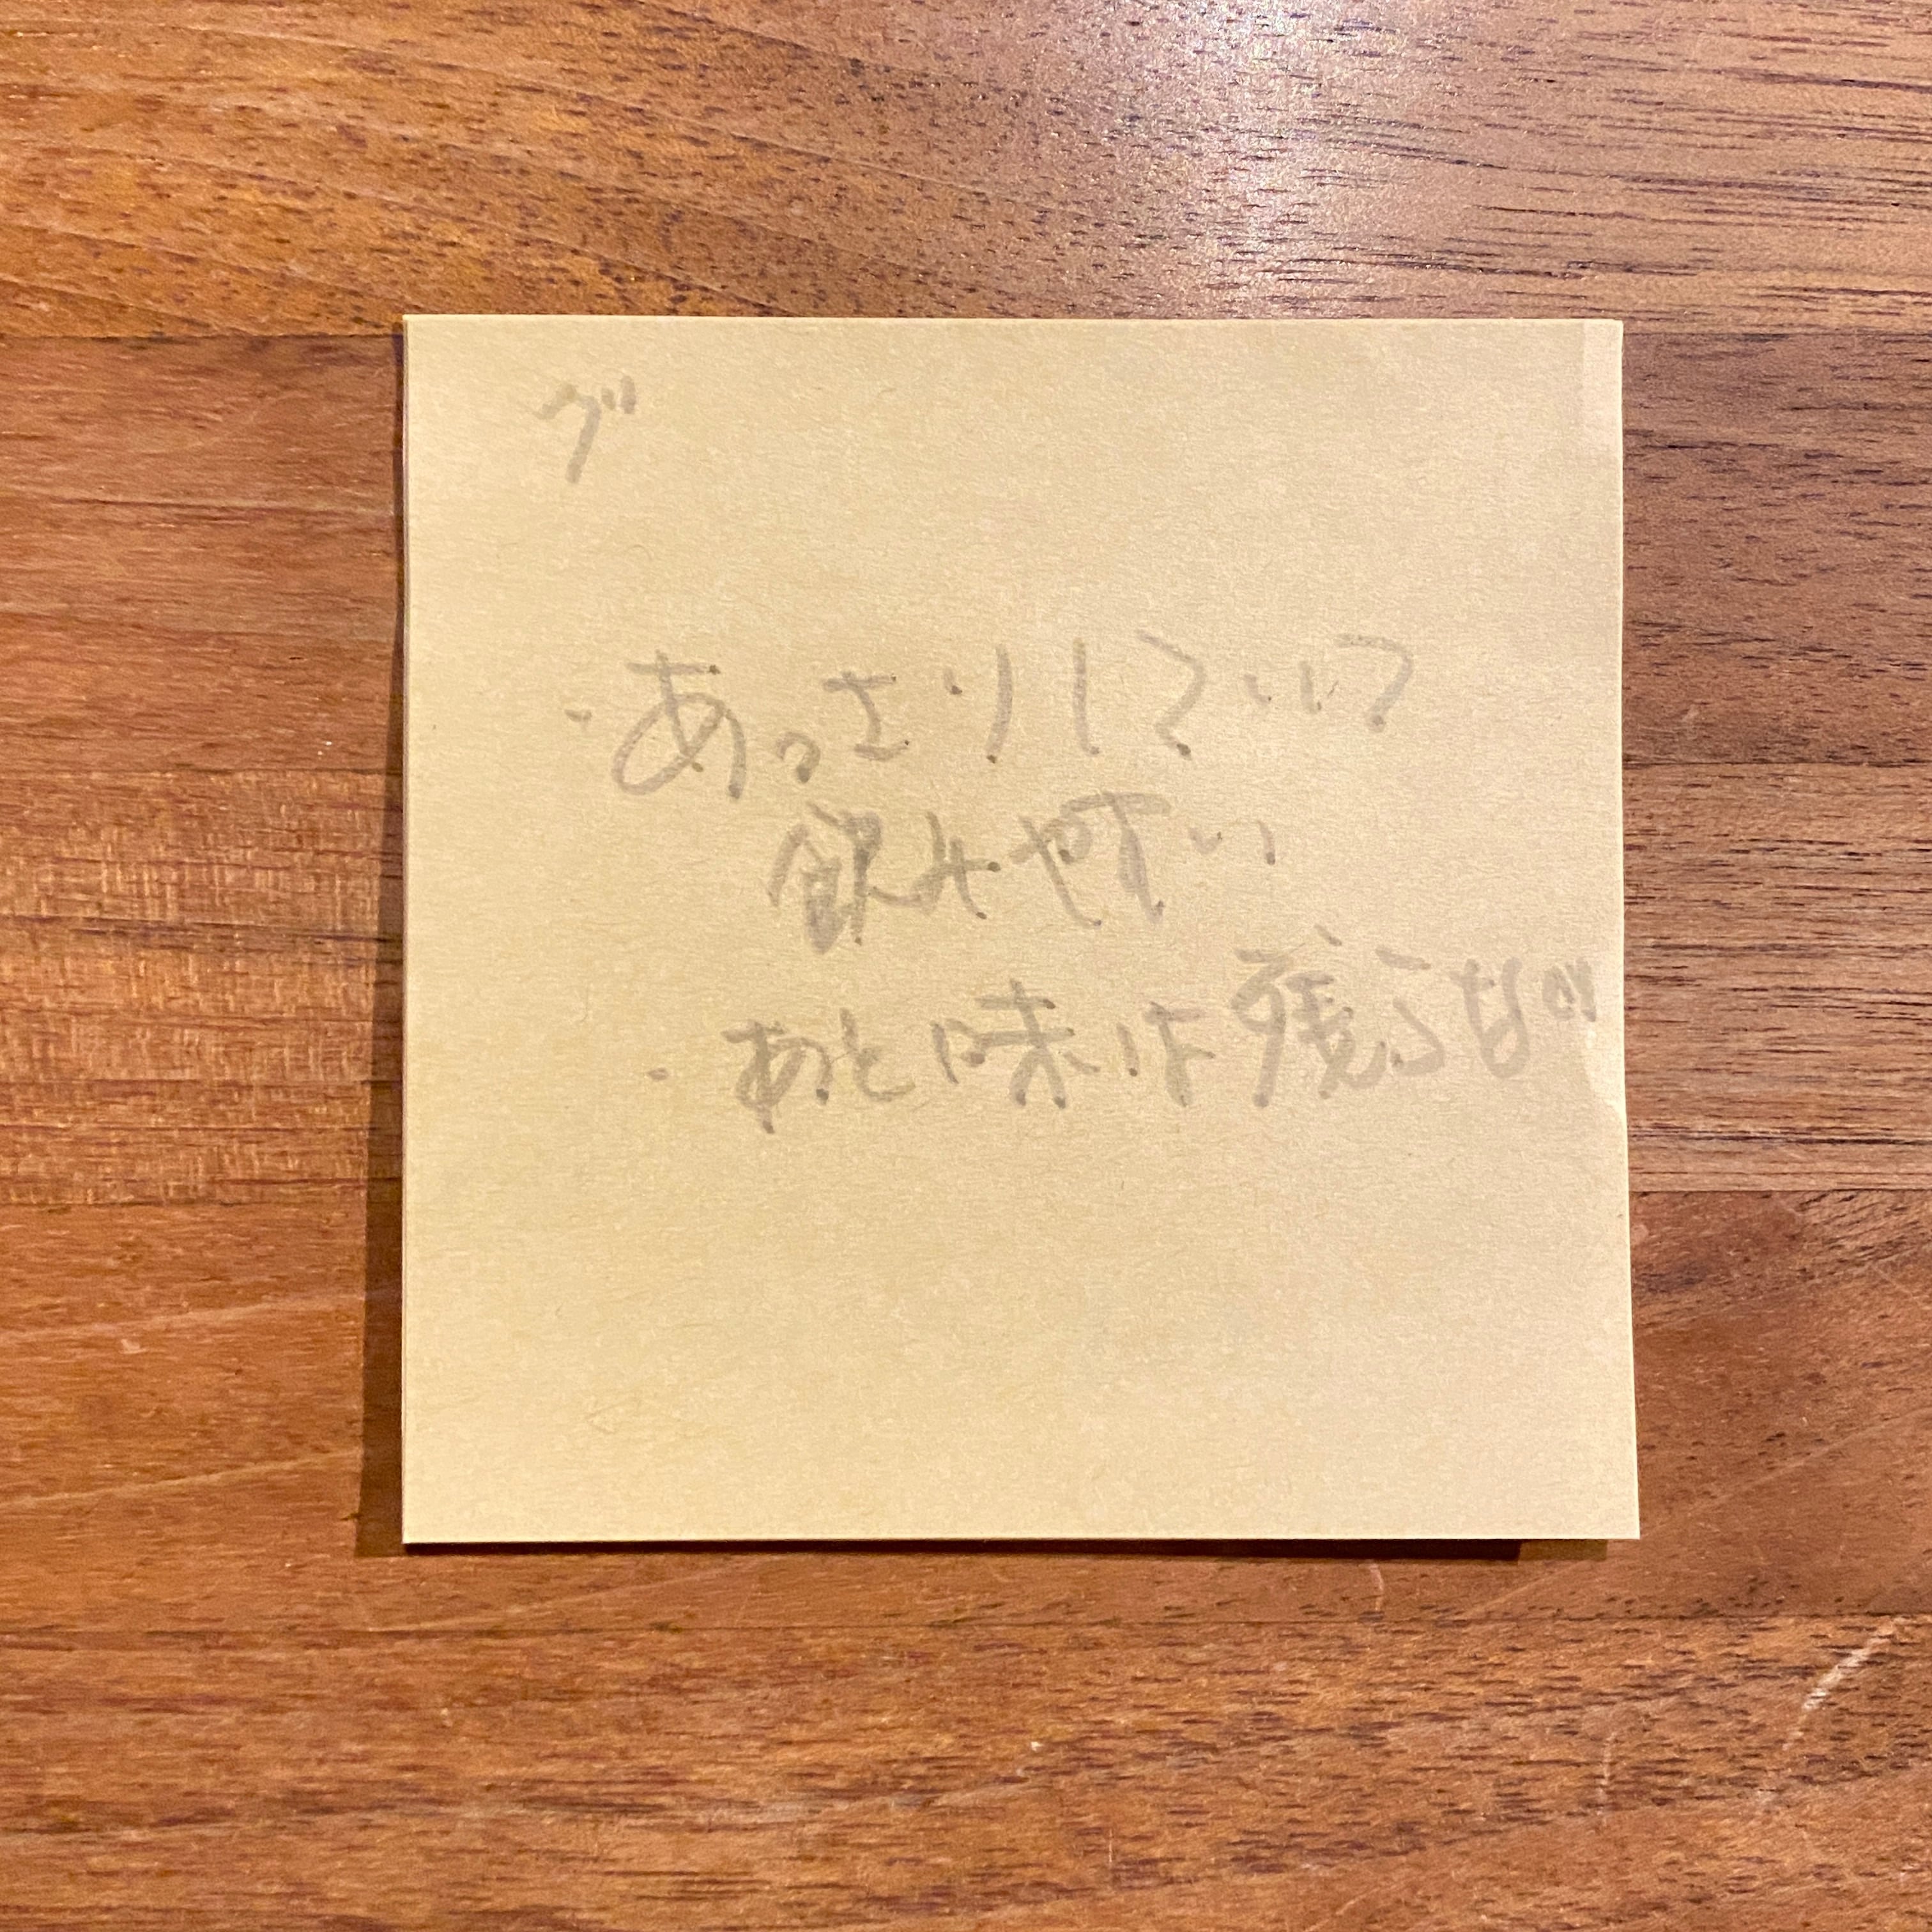 グ
・あっさりしていて
飲みやすい
・あと味は残らない